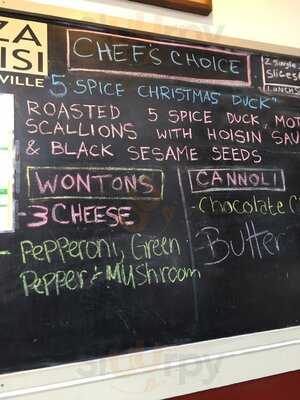 ZA
ISI
VILLE
CHEF'S CHOICE
2 Single
Slices
LUNCHS
5 SPICE CHRISTMAS DUCK"
ROASTED 5 SPICE DUCK, MOT
SCALLIONS WITH HOISIN SAU
& BLACK SESAME SEEDS
WONTONS
- 3 CHEESE
- Pepperoni, Green
Pepper + Mushroom
CANNOLI
- Chocolate C
Butter